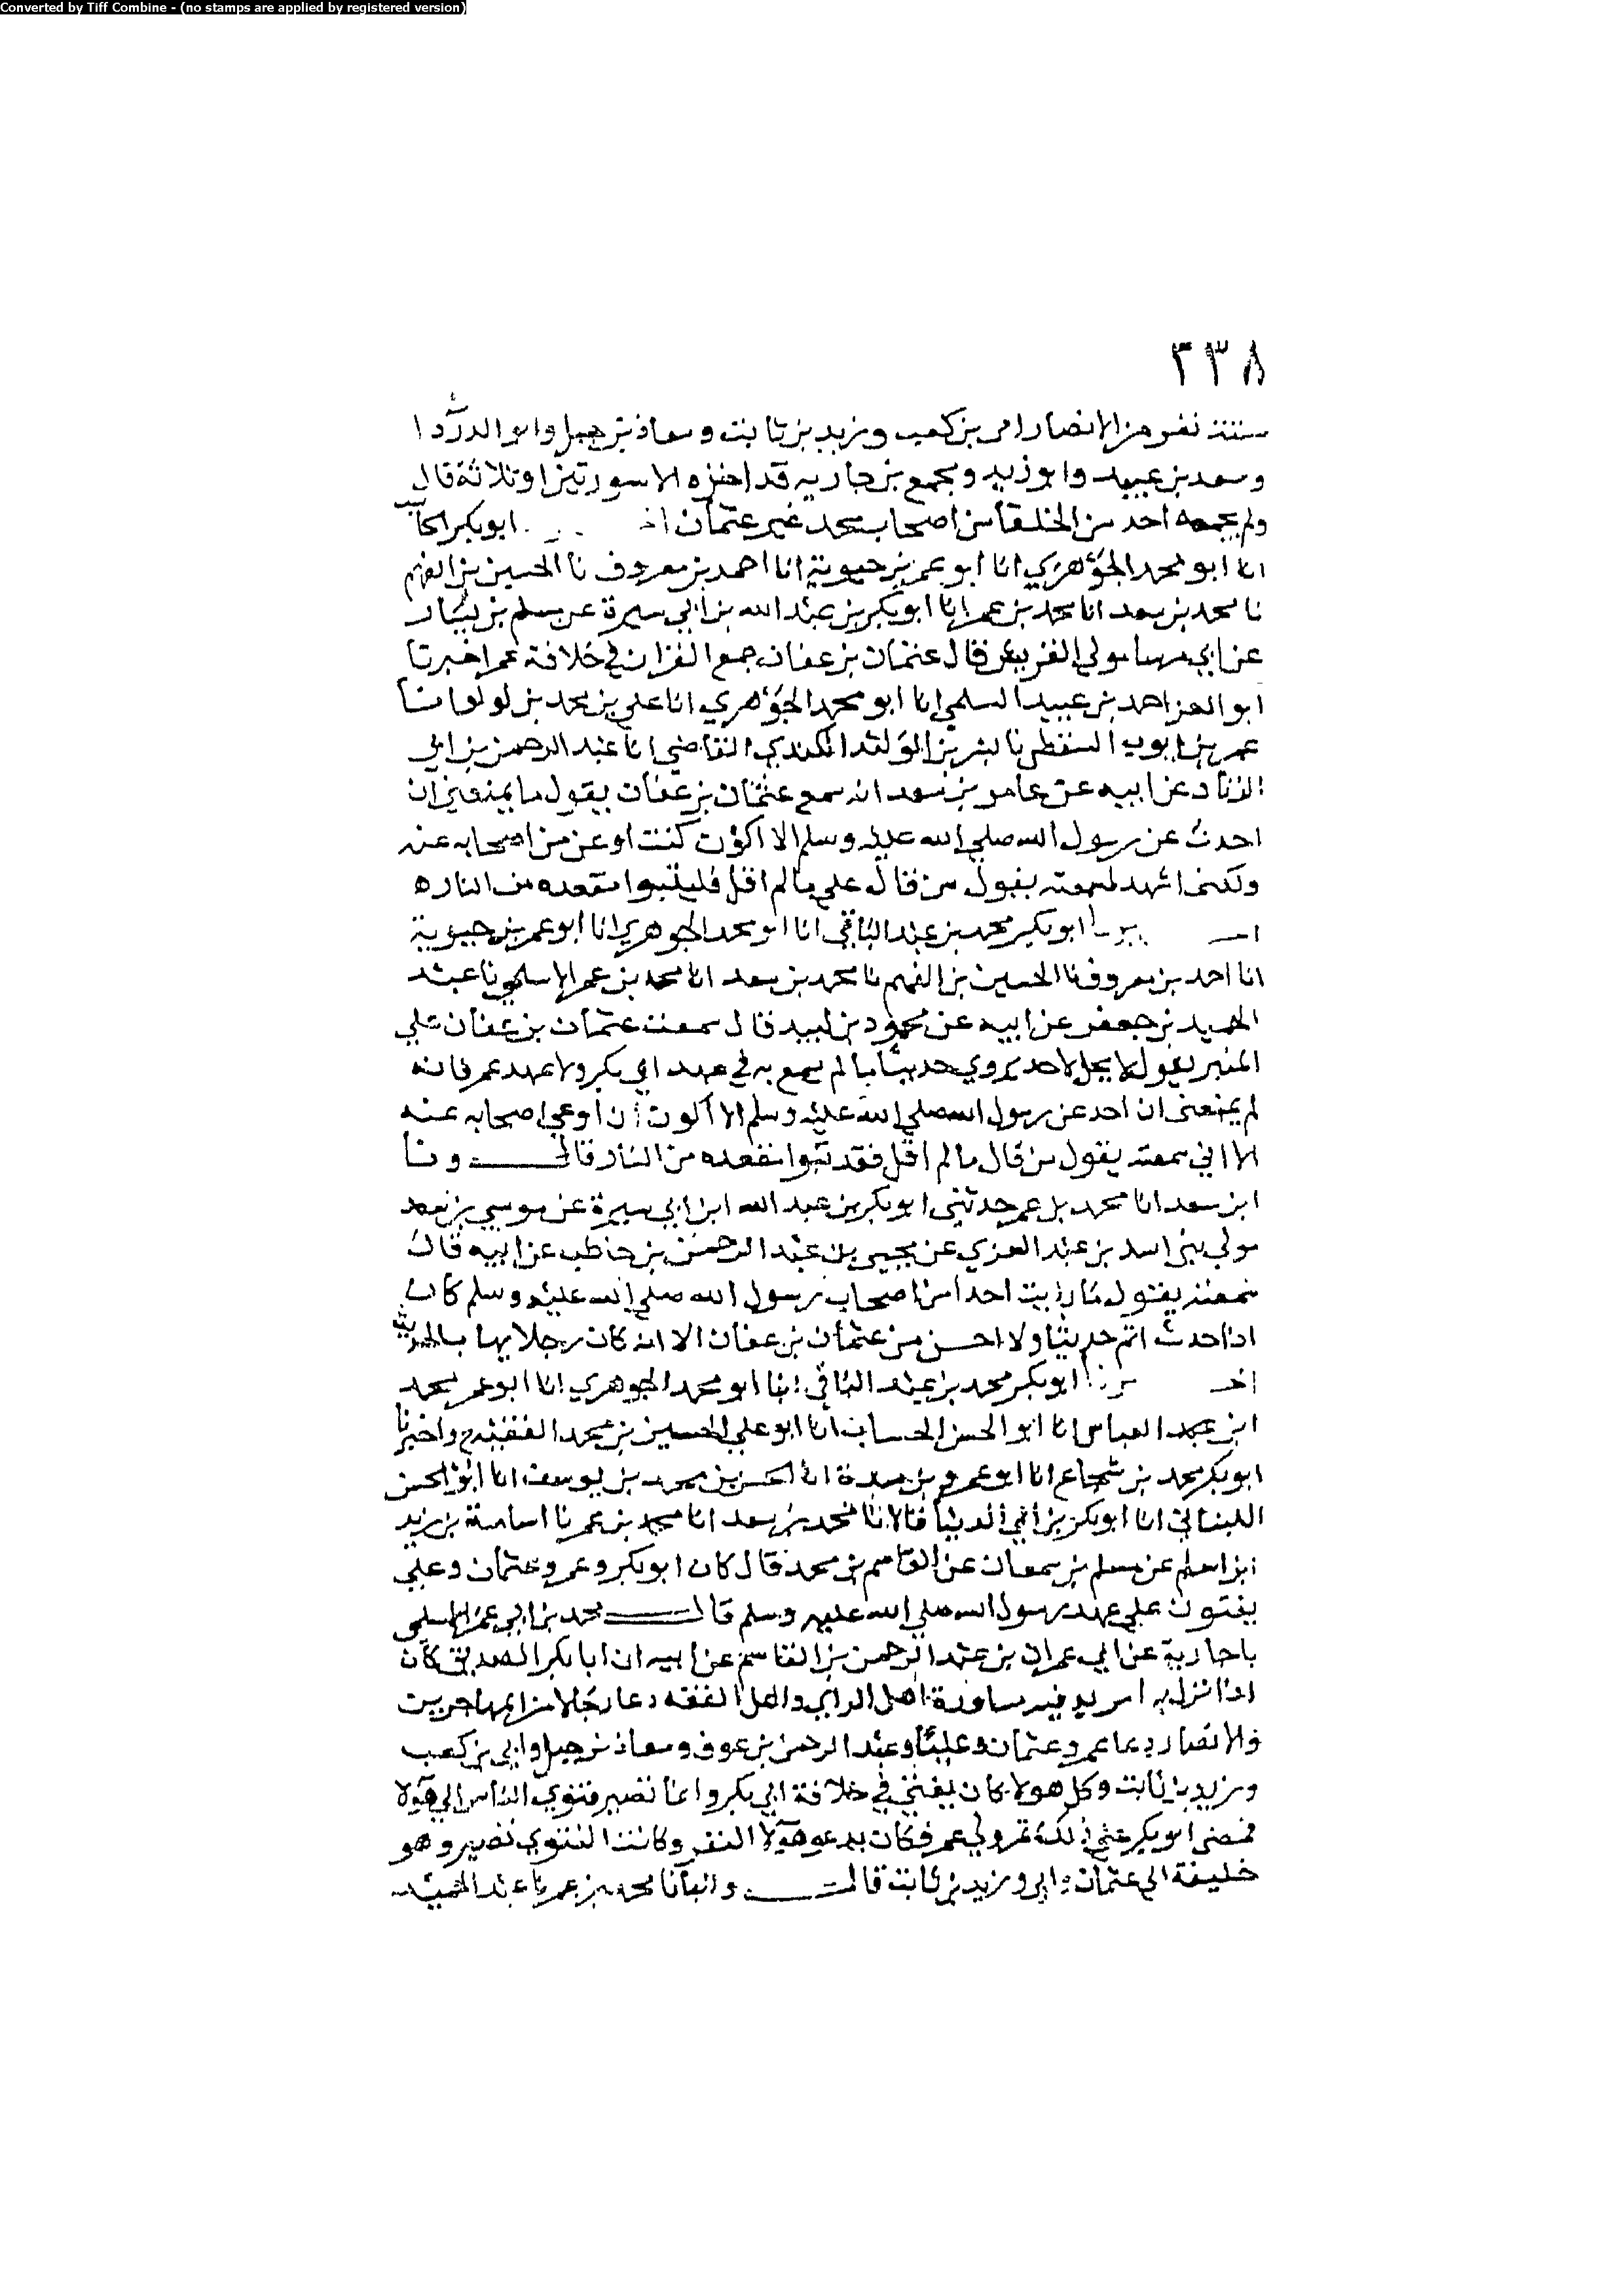 Converted by Tiff Combine - (no stamps are applied by registered version)
٢٣٨
ستة نفر من الانصار ابي بن كعب وزيد بن ثابت ومعاذ بن جبل وابو الدردا
وسعد بن عبيد وابو زيد ومجمع بن جارية قد اخذه الا سورتين او ثلاثة قال
ولم يجمعه احد من الخلفا من اصحاب محمد غير عثمان اخـ ابو بكر الحا
انا ابو محمد الجوهري انا ابو عمر بن حيوية انا احمد بن معروف نا الحسين بن الفهم
نا محمد بن سعد انا محمد بن عمر انا ابو بكر بن عبد الله بن ابي سبرة عن مسلم بن يسار
عن ابي مولي قال عثمان بن عفان جمع القران في خلافة عمر اخبرنا
ابو العز احمد بن عبيد السلمي انا ابو محمد الجوهري انا علي بن محمد بن لولو انا
عمر بن ايوب السقطي نا بشر بن الوليد الكندي القاضي انا عبد الرحمن بن ابي
الزناد عن ابيه عن عامر بن سعد انه سمع عثمان بن عفان يقول ما يمنعني ان
احدث عن رسول الله صلي الله عليه وسلم الا اكون كنت اوعي من اصحابه عنه
ولكني اشهد لسمعته يقول من قال علي ما لم اقل فليتبوا مقعده من النار ه
اخـ برنا ابو بكر محمد بن عبد الباقي انا ابو محمد الجوهري انا ابو عمر بن حيوية
انا احمد بن معروف نا الحسين بن الفهم نا محمد بن سعد انا محمد بن عمر الاسلمي نا عبد
الحميد بن جعفر عن ابيه عن محمود بن لبيد قال سمعت عثمان بن عفان علي
المنبر يقول لا يحل لاحد يروي حديثا ما لم يسمع به في عهد ابي بكر ولا عهد عمر فانه
لم يمنعني ان احد عن رسول الله صلي الله عليه وسلم الا اكون ان اوعي اصحابه عنه
الا اني سمعته يقول من قال ما لم اقل فقد تبوا مقعده من النار قال ونا
ابن سعد انا محمد بن عمر حدثني ابو بكر بن عبد الله ابن ابي سبرة عن موسي بن سعد
مولي بني اسد بن عبد العزي عن يحيي بن عبد الرحمن بن حاطب عن ابيه قال
سمعته يقول ما رايت احدا من اصحاب رسول الله صلي الله عليه وسلم كان
اذا حدث اتم حديثا ولا احسن من عثمان بن عفان الا انه كان رجلا يهاب الحديث
اخـ برنا ابو بكر محمد بن عبد الباقي انا ابو محمد الجوهري انا ابو عمر محمد
ابن العباس انا ابو الحسن الخشاب انا ابو علي الحسين بن محمد الفقيه ح واخبرنا
ابو بكر محمد بن شجاع انا ابو عمرو بن مندة انا الحسن بن محمد بن يوسف انا ابو الحسن
اللبناني انا ابو بكر بن ابي الدنيا قالا نا محمد بن سعد انا محمد بن عمر نا اسامة بن زيد
ابن اسلم عن مسلم بن سمعان عن القاسم بن محمد قال كان ابو بكر وعمر وعثمان وعلي
يفتون علي عهد رسول الله صلي الله عليه وسلم قال محمد بن عمر الاسلمي
نا جارية عن ابي عمران بن عبد الرحمن بن القاسم عن ابيه ان ابا بكر الصديق كان
اذا نزل به امر يريد فيه مشاورة اهل الراي واهل الفقه دعا رجالا من المهاجرين
والانصار دعا عمر وعثمان وعليا وعبد الرحمن بن عوف ومعاذ بن جبل وابي بن كعب
وزيد بن ثابت وكل هولا كان يفتي في خلافة ابي بكر وانما تصير فتوي الناس الي هولا
فمضي ابو بكر علي ذلك ثم ولي عمر فكان يدعو هولا النفر وكانت الفتوي تصير وهو
خليفة الي عثمان وابي وزيد بن ثابت قال وانبانا محمد بن عمر نا عبد الحميد